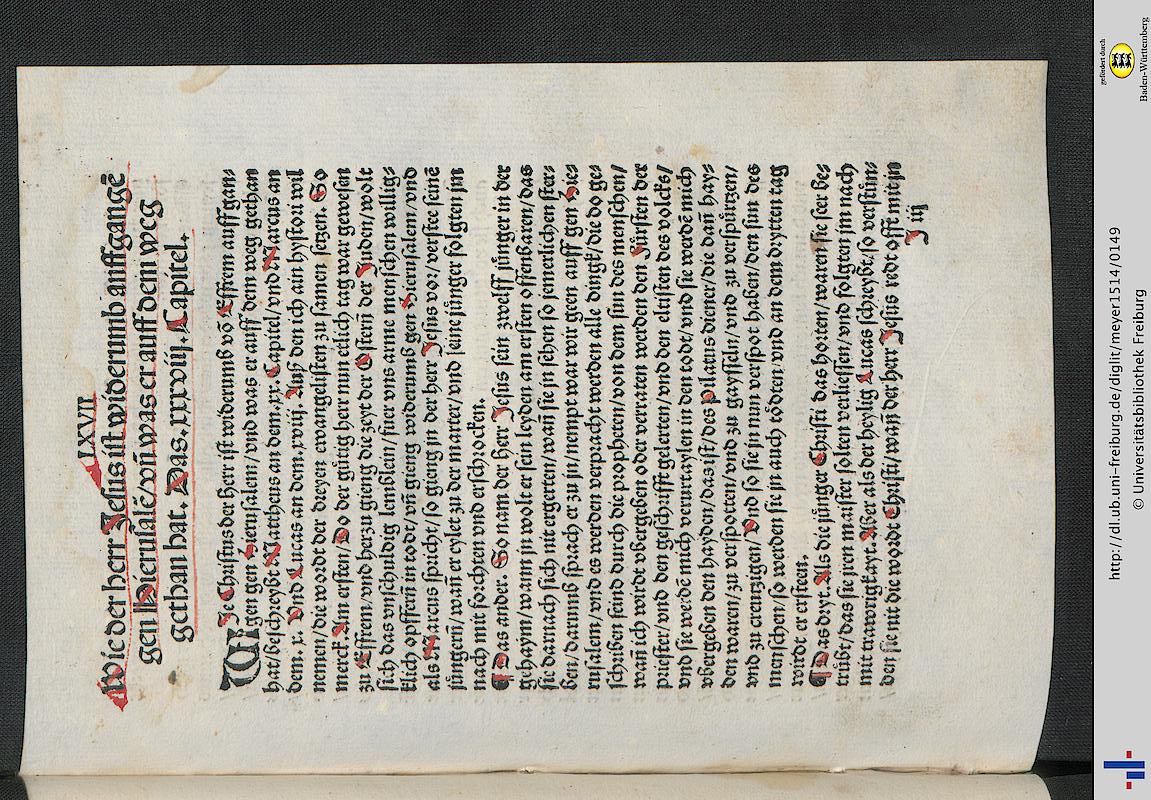 LXVII
Wie der herr Jesus ist widerumb auffgangē
gen Hierusalē/vn̄ was er auff dem weg
gethan hat. Das .xxviij. Capitel.
WJe Christus der herr ist widerumb vō Effrem auff gan⸗
gen gen Hierusalem/vnd was er auff dem weg gethan
hat/beschreybt Mattheus an dem .xx. Capitel/vnd Marcus an
dem .x. Vnd Lucas an dem .xviij. Auß den ich ain hystori will
nemen/die wordt der dreyen ewangelisten zu samen setzen. So
merck Am ersten/Do der gütig her nun etlich tag war gewesen
zu Effrem/vnd herzu gieng die zeyt der Ostern der Juden/wolt
sich das vnschuldig lemblein/fuer vns arme menschen willig⸗
klich opffern in tode/vn̄ gieng widerumb gen Hierusalem/vnd
als Marcus spricht/so gieng in der herr Jesus vor/verstee seinē
jüngern/wan̄ er eylet zu der marter/vnd seine jünger folgten jm
nach mit forchten vnd erschrocken.
¶ Das ander. So nam der herr Jesus sein zwelff jünger in der
gehaym/wann jn wolt er sein leyden am ersten offenbaren/das
sie darnach sich nit ergerten/wen̄ sie jn sehen so jemerlichen ster⸗
ben/darumb sprach er zu jn/nempt war wir geen auff gen Hie⸗
rusalem/vnd es werden verpracht werden alle dingk/die do ge⸗
schriben seind durch die propheten/von dem sun des menschen/
wan̄ ich wirdt vbergeben oder verraten werden den Fürsten der
priester/vnd den geschrifft gelerten/vnd den eltisten des volcks/
vnd sie werdē mich verurtaylen in den tode/vnd sie werdē mich
vbergeben den hayden/das ist/des Pilatus diener/die dan̄ hay⸗
den waren/zu verspotten/vnd zu gaysseln/vnd zu verspürtzen/
vnd zu creutzigen/Vnd so sie jn nun verspot haben/den sun des
menschen/so werden sie jn auch tödten vnd an dem drytten tag
wirdt er ersteen.
¶ Das dryt. Als die jünger Christi das horten/waren sie seer be⸗
trübt/das sie jren maister solten verliessen/vnd folgten jm nach
mit trawrigkayt. Aber als der heylig Lucas schreybt/so verstun⸗
den sie nit die wordt Christi/wan̄ der herr Jesus redt offt mit jn
J iij
http://dl.ub.uni-freiburg.de/diglit/meyer1514/0149
© Universitätsbibliothek Freiburg
gefördert durch
Baden-Württemberg